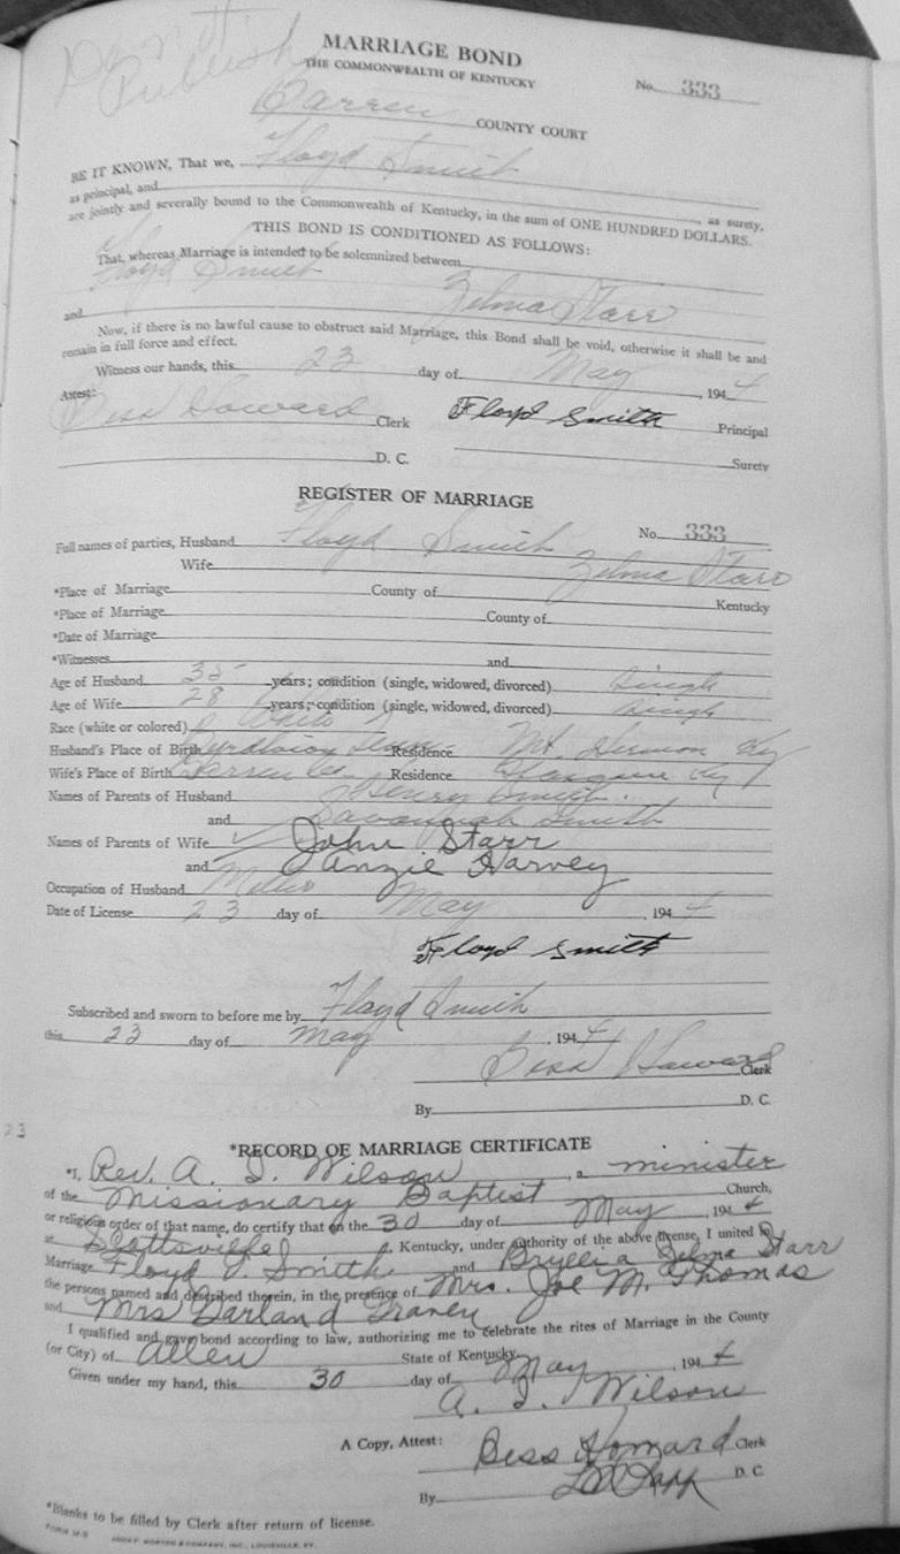 Don't
Publish
MARRIAGE BOND
THE COMMONWEALTH OF KENTUCKY
No. 333
Barren COUNTY COURT
BE IT KNOWN, That we, Floyd Smith
as principal, and , as surety,
are jointly and severally bound to the Commonwealth of Kentucky, in the sum of ONE HUNDRED DOLLARS.
THIS BOND IS CONDITIONED AS FOLLOWS:
That, whereas Marriage is intended to be solemnized between
Floyd Smith
and Zelma Starr
Now, if there is no lawful cause to obstruct said Marriage, this Bond shall be void, otherwise it shall be and
remain in full force and effect.
Witness our hands, this 23 day of May , 1944
Attest:
Bess Howard Clerk Floyd Smith Principal
D. C. Surety
REGISTER OF MARRIAGE
No. 333
Full names of parties, Husband Floyd Smith
Wife Zelma Starr
*Place of Marriage County of Kentucky
*Place of Marriage County of
*Date of Marriage
*Witnesses and
Age of Husband 35 years; condition (single, widowed, divorced) Single
Age of Wife 28 years; condition (single, widowed, divorced) Single
Race (white or colored) White
Husband's Place of Birth Tenn Residence Mt. Hermon Ky
Wife's Place of Birth Barren Co. Residence Glasgow Ky
Names of Parents of Husband Henry Smith
and Savannah Smith
Names of Parents of Wife John Starr
and Angie Harvey
Occupation of Husband
Date of License 23 day of May , 1944
Floyd Smith
Subscribed and sworn to before me by Floyd Smith
this 23 day of May , 1944
Bess Howard Clerk
By D. C.
23
*RECORD OF MARRIAGE CERTIFICATE
*I, Rev. A. I. Wilson , a minister
of the Missionary Baptist Church,
or religious order of that name, do certify that on the 30 day of May , 1944
at Scottsville , Kentucky, under authority of the above license, I united in
Marriage Floyd Smith and Zelma Starr
the persons named and described therein, in the presence of Mrs. Joe M. Thomas
and Mrs Garland
I qualified and gave bond according to law, authorizing me to celebrate the rites of Marriage in the County
(or City) of Allen State of Kentucky
Given under my hand, this 30 day of May , 1944
A. I. Wilson
A Copy, Attest: Bess Howard Clerk
By D. C.
*Blanks to be filled by Clerk after return of license.